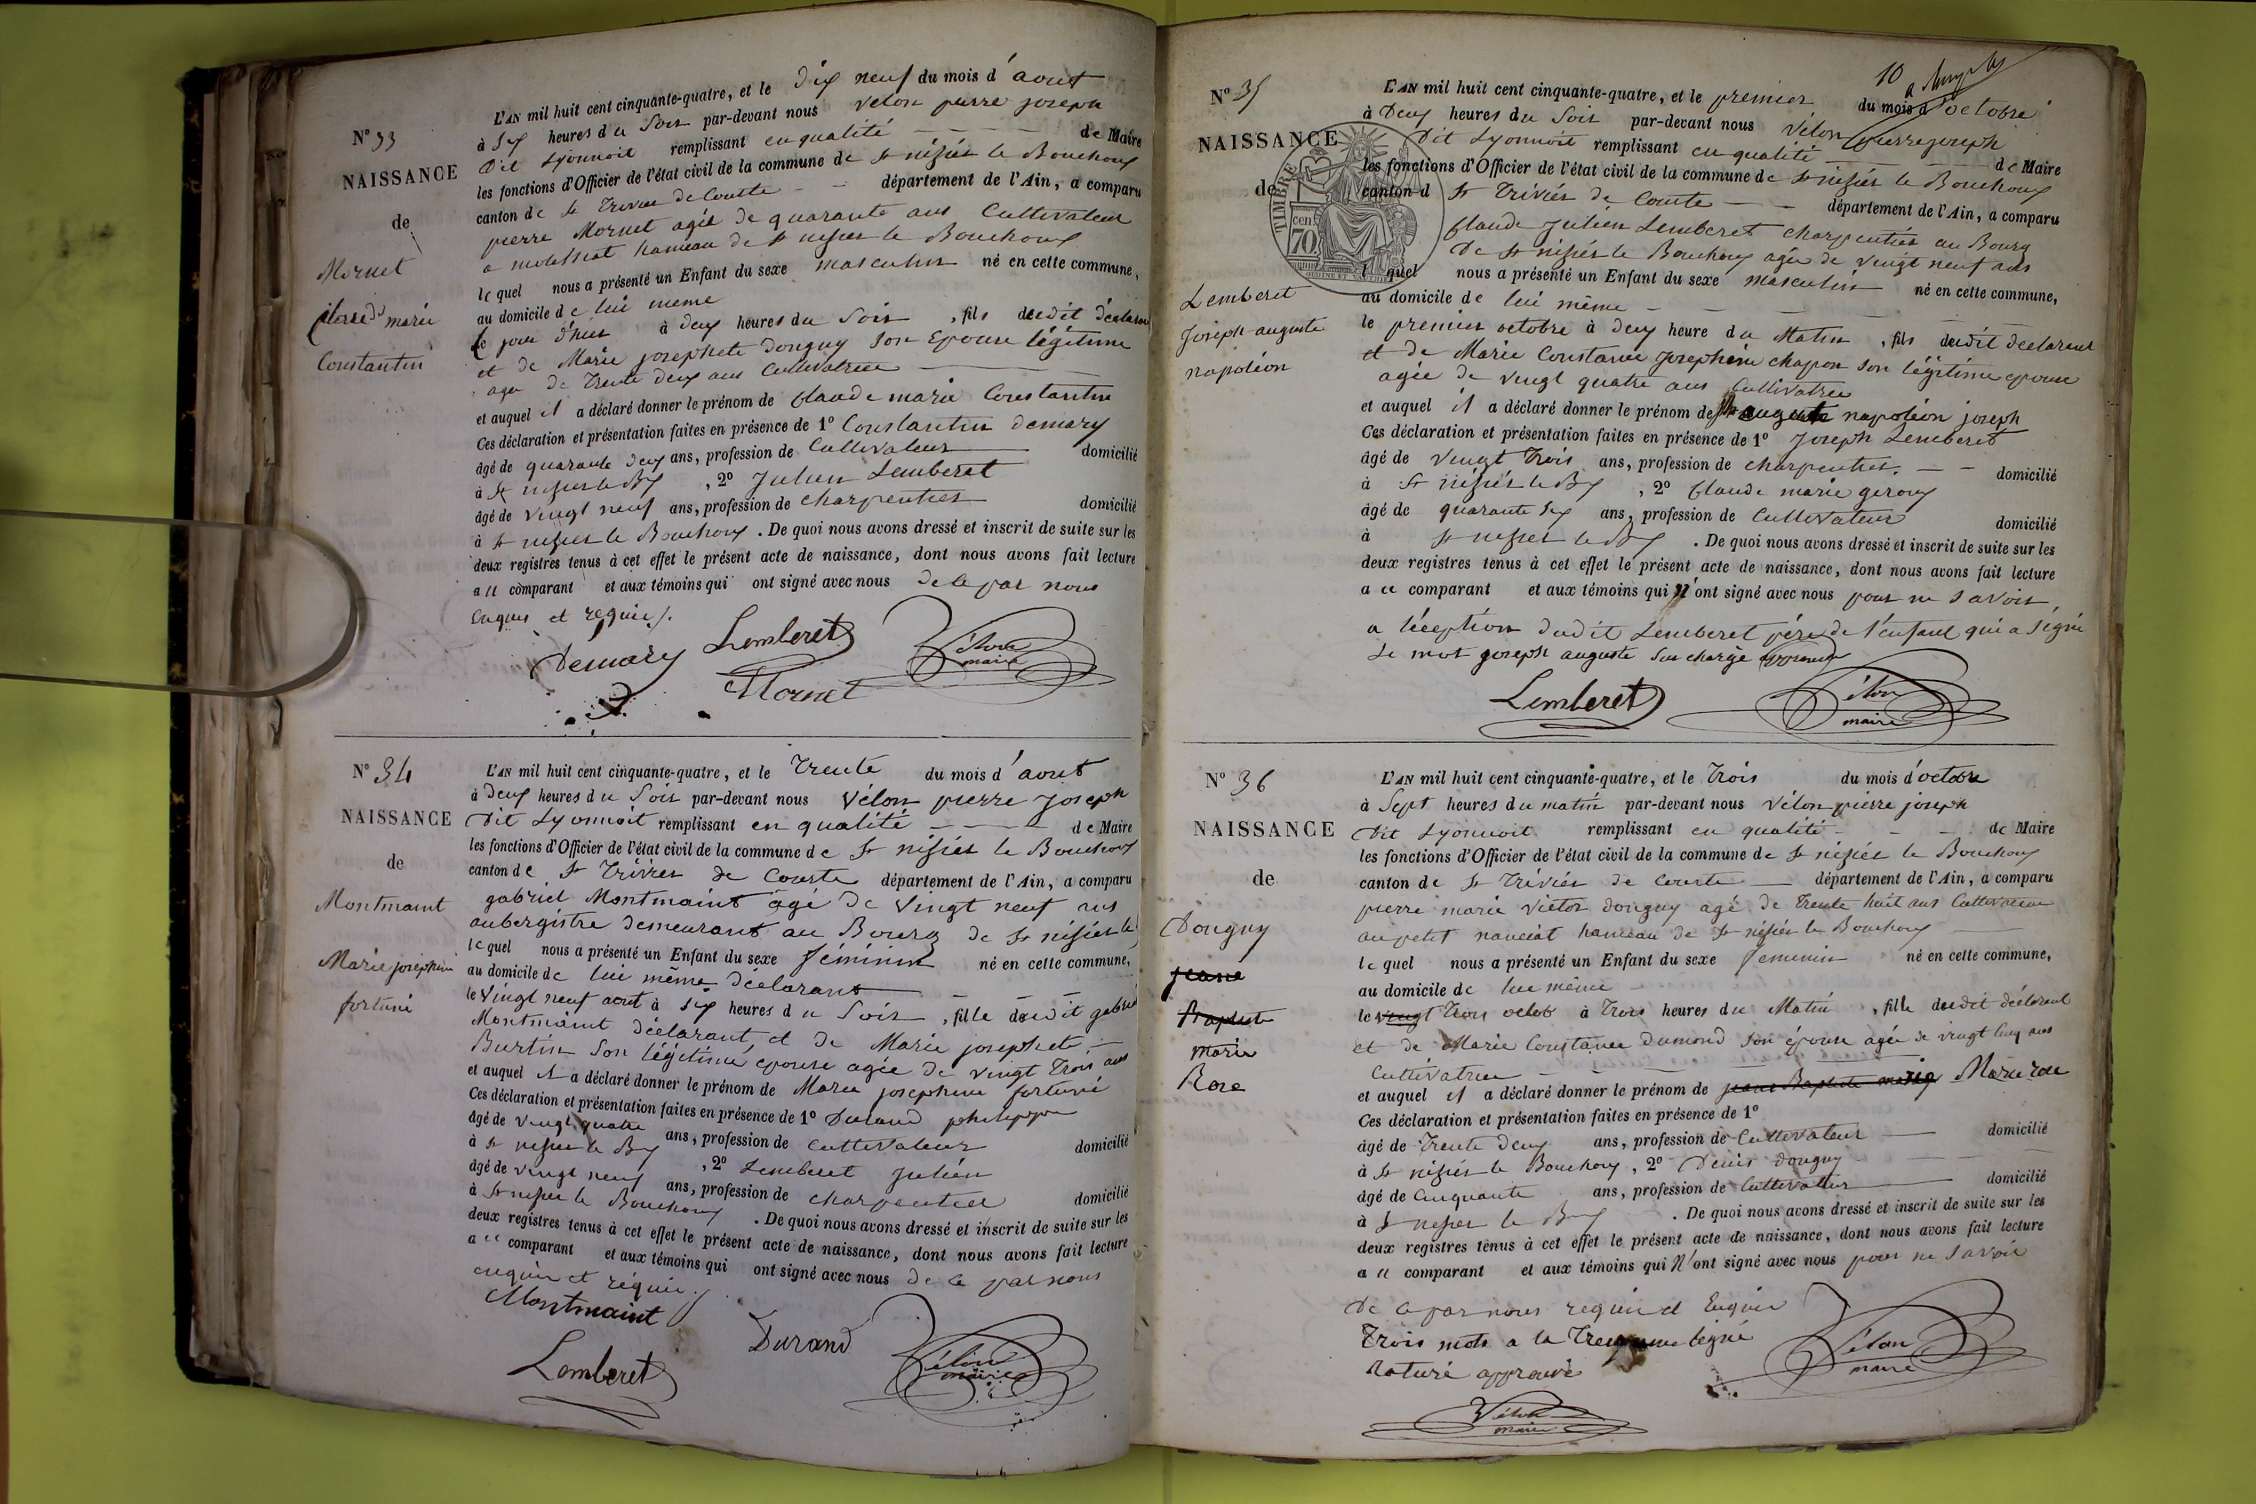 N° 33
NAISSANCE
de
Mornet
Claude marie
Constantin
L'AN mil huit cent cinquante-quatre, et le dix neuf du mois d'aout
à Six heures du Soir par-devant nous Vélon pierre joseph
Dit Lyonnoit remplissant en qualité de Maire
les fonctions d'Officier de l'état civil de la commune de St nisier le Bouchoux
canton de St Trivier de Courte département de l'Ain, a comparu
pierre Mornet agé de quarante ans Cultivateur
a hameau de St nisier le Bouchoux
lequel nous a présenté un Enfant du sexe masculin né en cette commune,
au domicile de lui meme
le jour d'hier à deux heures du Soir, fils dudit déclarant
et de Marie josephete Donguy Son Epouse légitime
age de Trente deux ans Cultivatrice
et auquel il a déclaré donner le prénom de Claude marie Constantin
Ces déclaration et présentation faites en présence de 1° Constantin demary
âgé de quarante deux ans, profession de Cultivateur domicilié
à St nisier le Bx, 2° Julien Lemberet
âgé de vingt neuf ans, profession de charpentier domicilié
à St nisier le Bouchoux. De quoi nous avons dressé et inscrit de suite sur les
deux registres tenus à cet effet le présent acte de naissance, dont nous avons fait lecture
au comparant et aux témoins qui ont signé avec nous de ce par nous
enquis et requis/.
Demary Lemberet Vélon
maire
Mornet
N° 34
NAISSANCE
de
Montmaint
Marie josephine
fortuné
L'AN mil huit cent cinquante-quatre, et le Trente du mois d'aout
à deux heures du Soir par-devant nous Vélon pierre Joseph
Dit Lyonnoit remplissant en qualité de Maire
les fonctions d'Officier de l'état civil de la commune de St nisier le Bouchoux
canton de St Trivier de Courte département de l'Ain, a comparu
gabriel Montmaint agé de Vingt neuf ans
aubergistre demeurant au Bourg de St nisier le
lequel nous a présenté un Enfant du sexe féminin né en cette commune,
au domicile de lui même déclarant
le Vingt neuf aout à six heures du Soir, fille dudit gabriel
Montmaint déclarant et de Marie josephete
Burtin Son légitime epouse agée de vingt Trois ans
et auquel il a déclaré donner le prénom de Marie josephine fortuné
Ces déclaration et présentation faites en présence de 1° Durand philippe
âgé de vingt quatre ans, profession de Cultivateur domicilié
à St nisier le Bx, 2° Lemberet Julien
âgé de vingt neuf ans, profession de charpentier domicilié
à St nisier le Bouchoux. De quoi nous avons dressé et inscrit de suite sur les
deux registres tenus à cet effet le présent acte de naissance, dont nous avons fait lecture
au comparant et aux témoins qui ont signé avec nous de ce par nous
enquis et requis/.
Montmaint
Durand
Lemberet Vélon
maire
10
N° 35
NAISSANCE
de
TIMBRE
70 cen
Lemberet
Joseph auguste
napoléon
L'AN mil huit cent cinquante-quatre, et le premier du mois d'octobre
à Deux heures du Soir par-devant nous Vélon pierre joseph
Dit Lyonnoit remplissant en qualité de Maire
les fonctions d'Officier de l'état civil de la commune de St nisier le Bouchoux
canton d St Trivier de Courte département de l'Ain, a comparu
Claude Julien Lemberet charpentier au Bourg
De St nisier le Bouchoux agée de vingt neuf ans
l quel nous a présenté un Enfant du sexe masculin né en cette commune,
au domicile de lui même
le premier octobre à deux heure du Matin, fils dudit déclarant
et de Marie Constance Josephine chapon son légitime epouse
agée de vingt quatre ans Cultivatrice
et auquel il a déclaré donner le prénom de auguste napoléon joseph
Ces déclaration et présentation faites en présence de 1° Joseph Lemberet
âgé de vingt Trois ans, profession de charpentier domicilié
à St nisier le Bx, 2° Claude marie geroux
âgé de quarante six ans, profession de Cultivateur domicilié
à St nisier le Bx. De quoi nous avons dressé et inscrit de suite sur les
deux registres tenus à cet effet le présent acte de naissance, dont nous avons fait lecture
au comparant et aux témoins qui n'ont signé avec nous pour ne savoir
a léception dudit Lemberet père de l'enfant qui a signé
Le mot joseph auguste surchargé approuvé
Lemberet Vélon
maire
N° 36
NAISSANCE
de
Donguy
jeane
Baptiste
marie
Rose
L'AN mil huit cent cinquante-quatre, et le Trois du mois d'octobre
à Sept heures du matin par-devant nous Vélon pierre joseph
Dit Lyonnoit remplissant en qualité de Maire
les fonctions d'Officier de l'état civil de la commune de St nisier le Bouchoux
canton de St Trivier de Courte département de l'Ain, a comparu
pierre marie victor donguy agé de Trente huit ans Cultivateur
au petit nanciat hameau de St nisier le Bouchoux
lequel nous a présenté un Enfant du sexe feminin né en cette commune,
au domicile de lui même
le vingt Trois octob à Trois heures du Matin, fille dudit déclarant
et de Marie Constance Dumond Son épouse agée de vingt cinq ans
Cultivatrice
et auquel il a déclaré donner le prénom de jeane Baptiste marie Marie rose
Ces déclaration et présentation faites en présence de 1°
âgé de Trente deux ans, profession de Cultivateur domicilié
à St nisier le Bouchoux, 2° Denis donguy
âgé de Cinquante ans, profession de Cultivateur domicilié
à St nisier le Bx. De quoi nous avons dressé et inscrit de suite sur les
deux registres tenus à cet effet le présent acte de naissance, dont nous avons fait lecture
au comparant et aux témoins qui n'ont signé avec nous pour ne savoir
De ce par nous requis et Enquis
Trois mots a la ligne
raturé approuvé
Vélon
maire
Vélon
maire